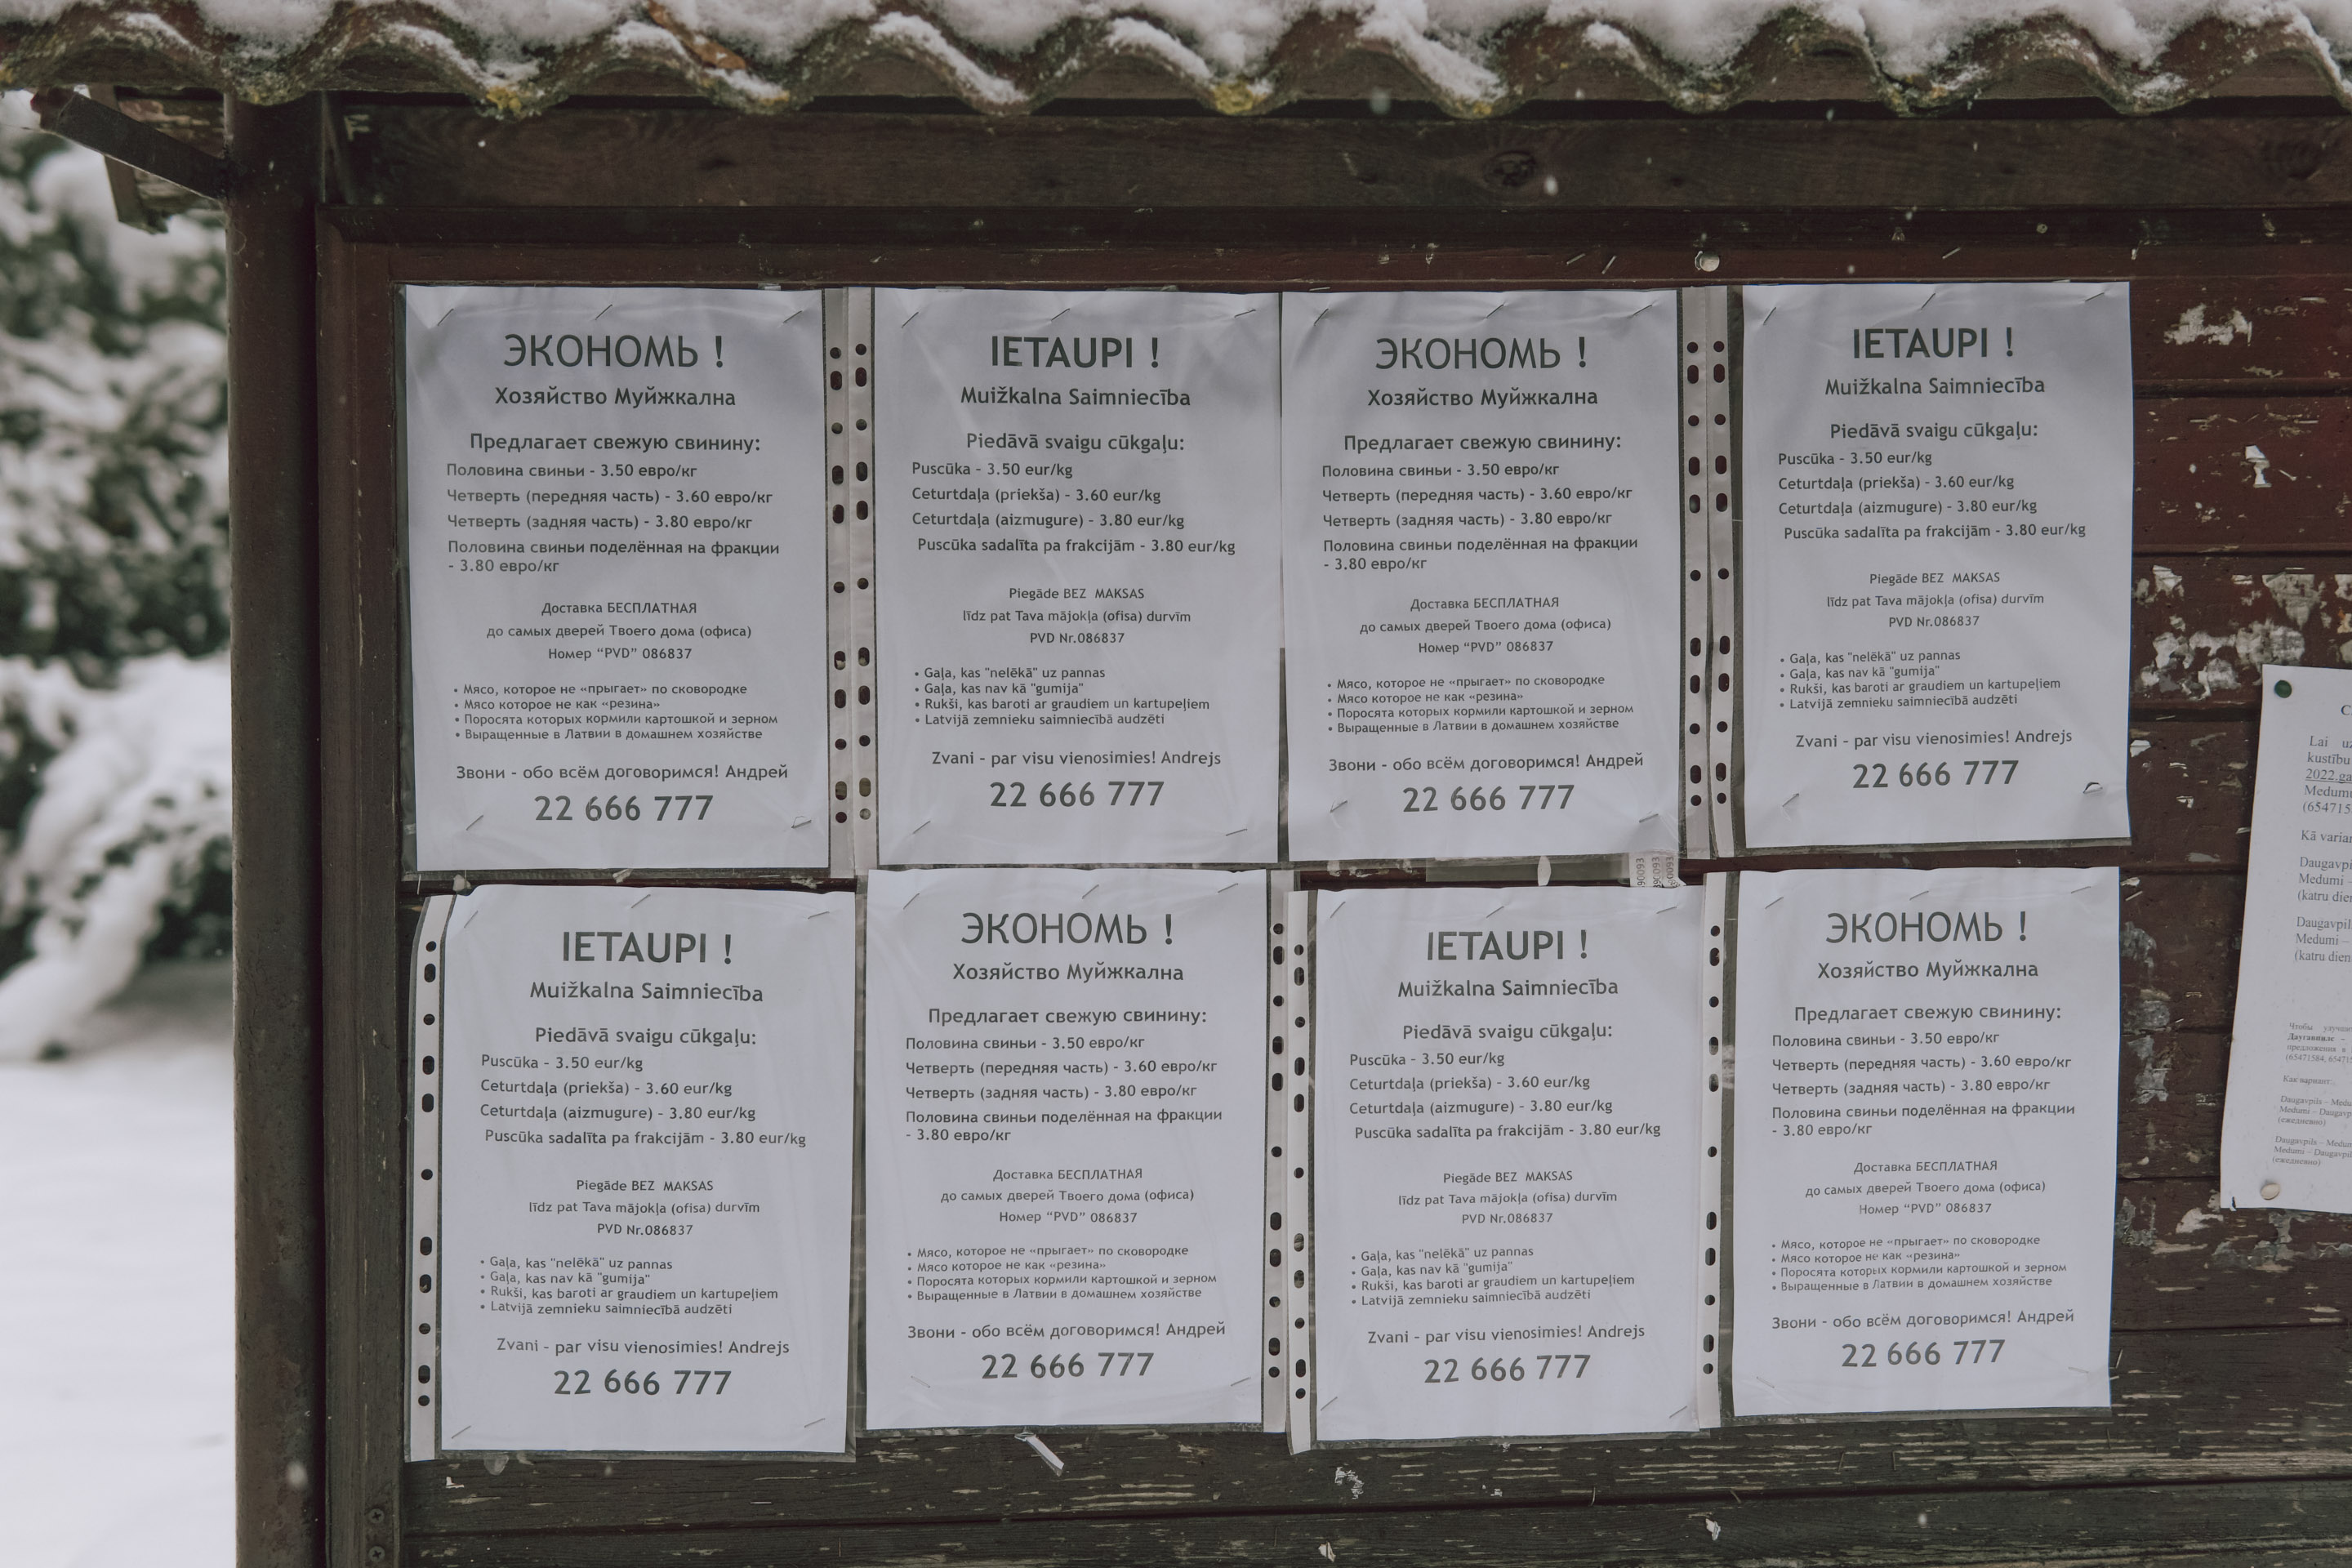 ЭКОНОМЬ !
Хозяйство Муйжкална
Предлагает свежую свинину:
Половина свиньи - 3.50 евро/кг
Четверть (передняя часть) - 3.60 евро/кг
Четверть (задняя часть) - 3.80 евро/кг
Половина свиньи поделённая на фракции
- 3.80 евро/кг
Доставка БЕСПЛАТНАЯ
до самых дверей Твоего дома (офиса)
Номер “PVD” 086837
• Мясо, которое не «прыгает» по сковородке
• Мясо которое не как «резина»
• Поросята которых кормили картошкой и зерном
• Выращенные в Латвии в домашнем хозяйстве
Звони - обо всём договоримся! Андрей
22 666 777
IETAUPI !
Muižkalna Saimniecība
Piedāvā svaigu cūkgaļu:
Puscūka - 3.50 eur/kg
Ceturtdaļa (priekša) - 3.60 eur/kg
Ceturtdaļa (aizmugure) - 3.80 eur/kg
Puscūka sadalīta pa frakcijām - 3.80 eur/kg
Piegāde BEZ MAKSAS
līdz pat Tava mājokļa (ofisa) durvīm
PVD Nr.086837
• Gaļa, kas "nelēkā" uz pannas
• Gaļa, kas nav kā "gumija"
• Rukši, kas baroti ar graudiem un kartupeļiem
• Latvijā zemnieku saimniecībā audzēti
Zvani - par visu vienosimies! Andrejs
22 666 777
ЭКОНОМЬ !
Хозяйство Муйжкална
Предлагает свежую свинину:
Половина свиньи - 3.50 евро/кг
Четверть (передняя часть) - 3.60 евро/кг
Четверть (задняя часть) - 3.80 евро/кг
Половина свиньи поделённая на фракции
- 3.80 евро/кг
Доставка БЕСПЛАТНАЯ
до самых дверей Твоего дома (офиса)
Номер “PVD” 086837
• Мясо, которое не «прыгает» по сковородке
• Мясо которое не как «резина»
• Поросята которых кормили картошкой и зерном
• Выращенные в Латвии в домашнем хозяйстве
Звони - обо всём договоримся! Андрей
22 666 777
IETAUPI !
Muižkalna Saimniecība
Piedāvā svaigu cūkgaļu:
Puscūka - 3.50 eur/kg
Ceturtdaļa (priekša) - 3.60 eur/kg
Ceturtdaļa (aizmugure) - 3.80 eur/kg
Puscūka sadalīta pa frakcijām - 3.80 eur/kg
Piegāde BEZ MAKSAS
līdz pat Tava mājokļa (ofisa) durvīm
PVD Nr.086837
• Gaļa, kas "nelēkā" uz pannas
• Gaļa, kas nav kā "gumija"
• Rukši, kas baroti ar graudiem un kartupeļiem
• Latvijā zemnieku saimniecībā audzēti
Zvani - par visu vienosimies! Andrejs
22 666 777
IETAUPI !
Muižkalna Saimniecība
Piedāvā svaigu cūkgaļu:
Puscūka - 3.50 eur/kg
Ceturtdaļa (priekša) - 3.60 eur/kg
Ceturtdaļa (aizmugure) - 3.80 eur/kg
Puscūka sadalīta pa frakcijām - 3.80 eur/kg
Piegāde BEZ MAKSAS
līdz pat Tava mājokļa (ofisa) durvīm
PVD Nr.086837
• Gaļa, kas "nelēkā" uz pannas
• Gaļa, kas nav kā "gumija"
• Rukši, kas baroti ar graudiem un kartupeļiem
• Latvijā zemnieku saimniecībā audzēti
Zvani - par visu vienosimies! Andrejs
22 666 777
ЭКОНОМЬ !
Хозяйство Муйжкална
Предлагает свежую свинину:
Половина свиньи - 3.50 евро/кг
Четверть (передняя часть) - 3.60 евро/кг
Четверть (задняя часть) - 3.80 евро/кг
Половина свиньи поделённая на фракции
- 3.80 евро/кг
Доставка БЕСПЛАТНАЯ
до самых дверей Твоего дома (офиса)
Номер “PVD” 086837
• Мясо, которое не «прыгает» по сковородке
• Мясо которое не как «резина»
• Поросята которых кормили картошкой и зерном
• Выращенные в Латвии в домашнем хозяйстве
Звони - обо всём договоримся! Андрей
22 666 777
IETAUPI !
Muižkalna Saimniecība
Piedāvā svaigu cūkgaļu:
Puscūka - 3.50 eur/kg
Ceturtdaļa (priekša) - 3.60 eur/kg
Ceturtdaļa (aizmugure) - 3.80 eur/kg
Puscūka sadalīta pa frakcijām - 3.80 eur/kg
Piegāde BEZ MAKSAS
līdz pat Tava mājokļa (ofisa) durvīm
PVD Nr.086837
• Gaļa, kas "nelēkā" uz pannas
• Gaļa, kas nav kā "gumija"
• Rukši, kas baroti ar graudiem un kartupeļiem
• Latvijā zemnieku saimniecībā audzēti
Zvani - par visu vienosimies! Andrejs
22 666 777
ЭКОНОМЬ !
Хозяйство Муйжкална
Предлагает свежую свинину:
Половина свиньи - 3.50 евро/кг
Четверть (передняя часть) - 3.60 евро/кг
Четверть (задняя часть) - 3.80 евро/кг
Половина свиньи поделённая на фракции
- 3.80 евро/кг
Доставка БЕСПЛАТНАЯ
до самых дверей Твоего дома (офиса)
Номер “PVD” 086837
• Мясо, которое не «прыгает» по сковородке
• Мясо которое не как «резина»
• Поросята которых кормили картошкой и зерном
• Выращенные в Латвии в домашнем хозяйстве
Звони - обо всём договоримся! Андрей
22 666 777
Lai uz
kustību
2022.ga
(65471
Kā varian
Daugavpi
Medumi –
(katru dien
Daugavpils
Medumi –
(katru dien
Чтобы
Даугавпилс –
предложения в
(65471584, 65471
Как вариант:
Daugavpils – Medu
Medumi – Daugavp
(ежедневно)
Daugavpils – Medum
Medumi – Daugavpil
(ежедневно)